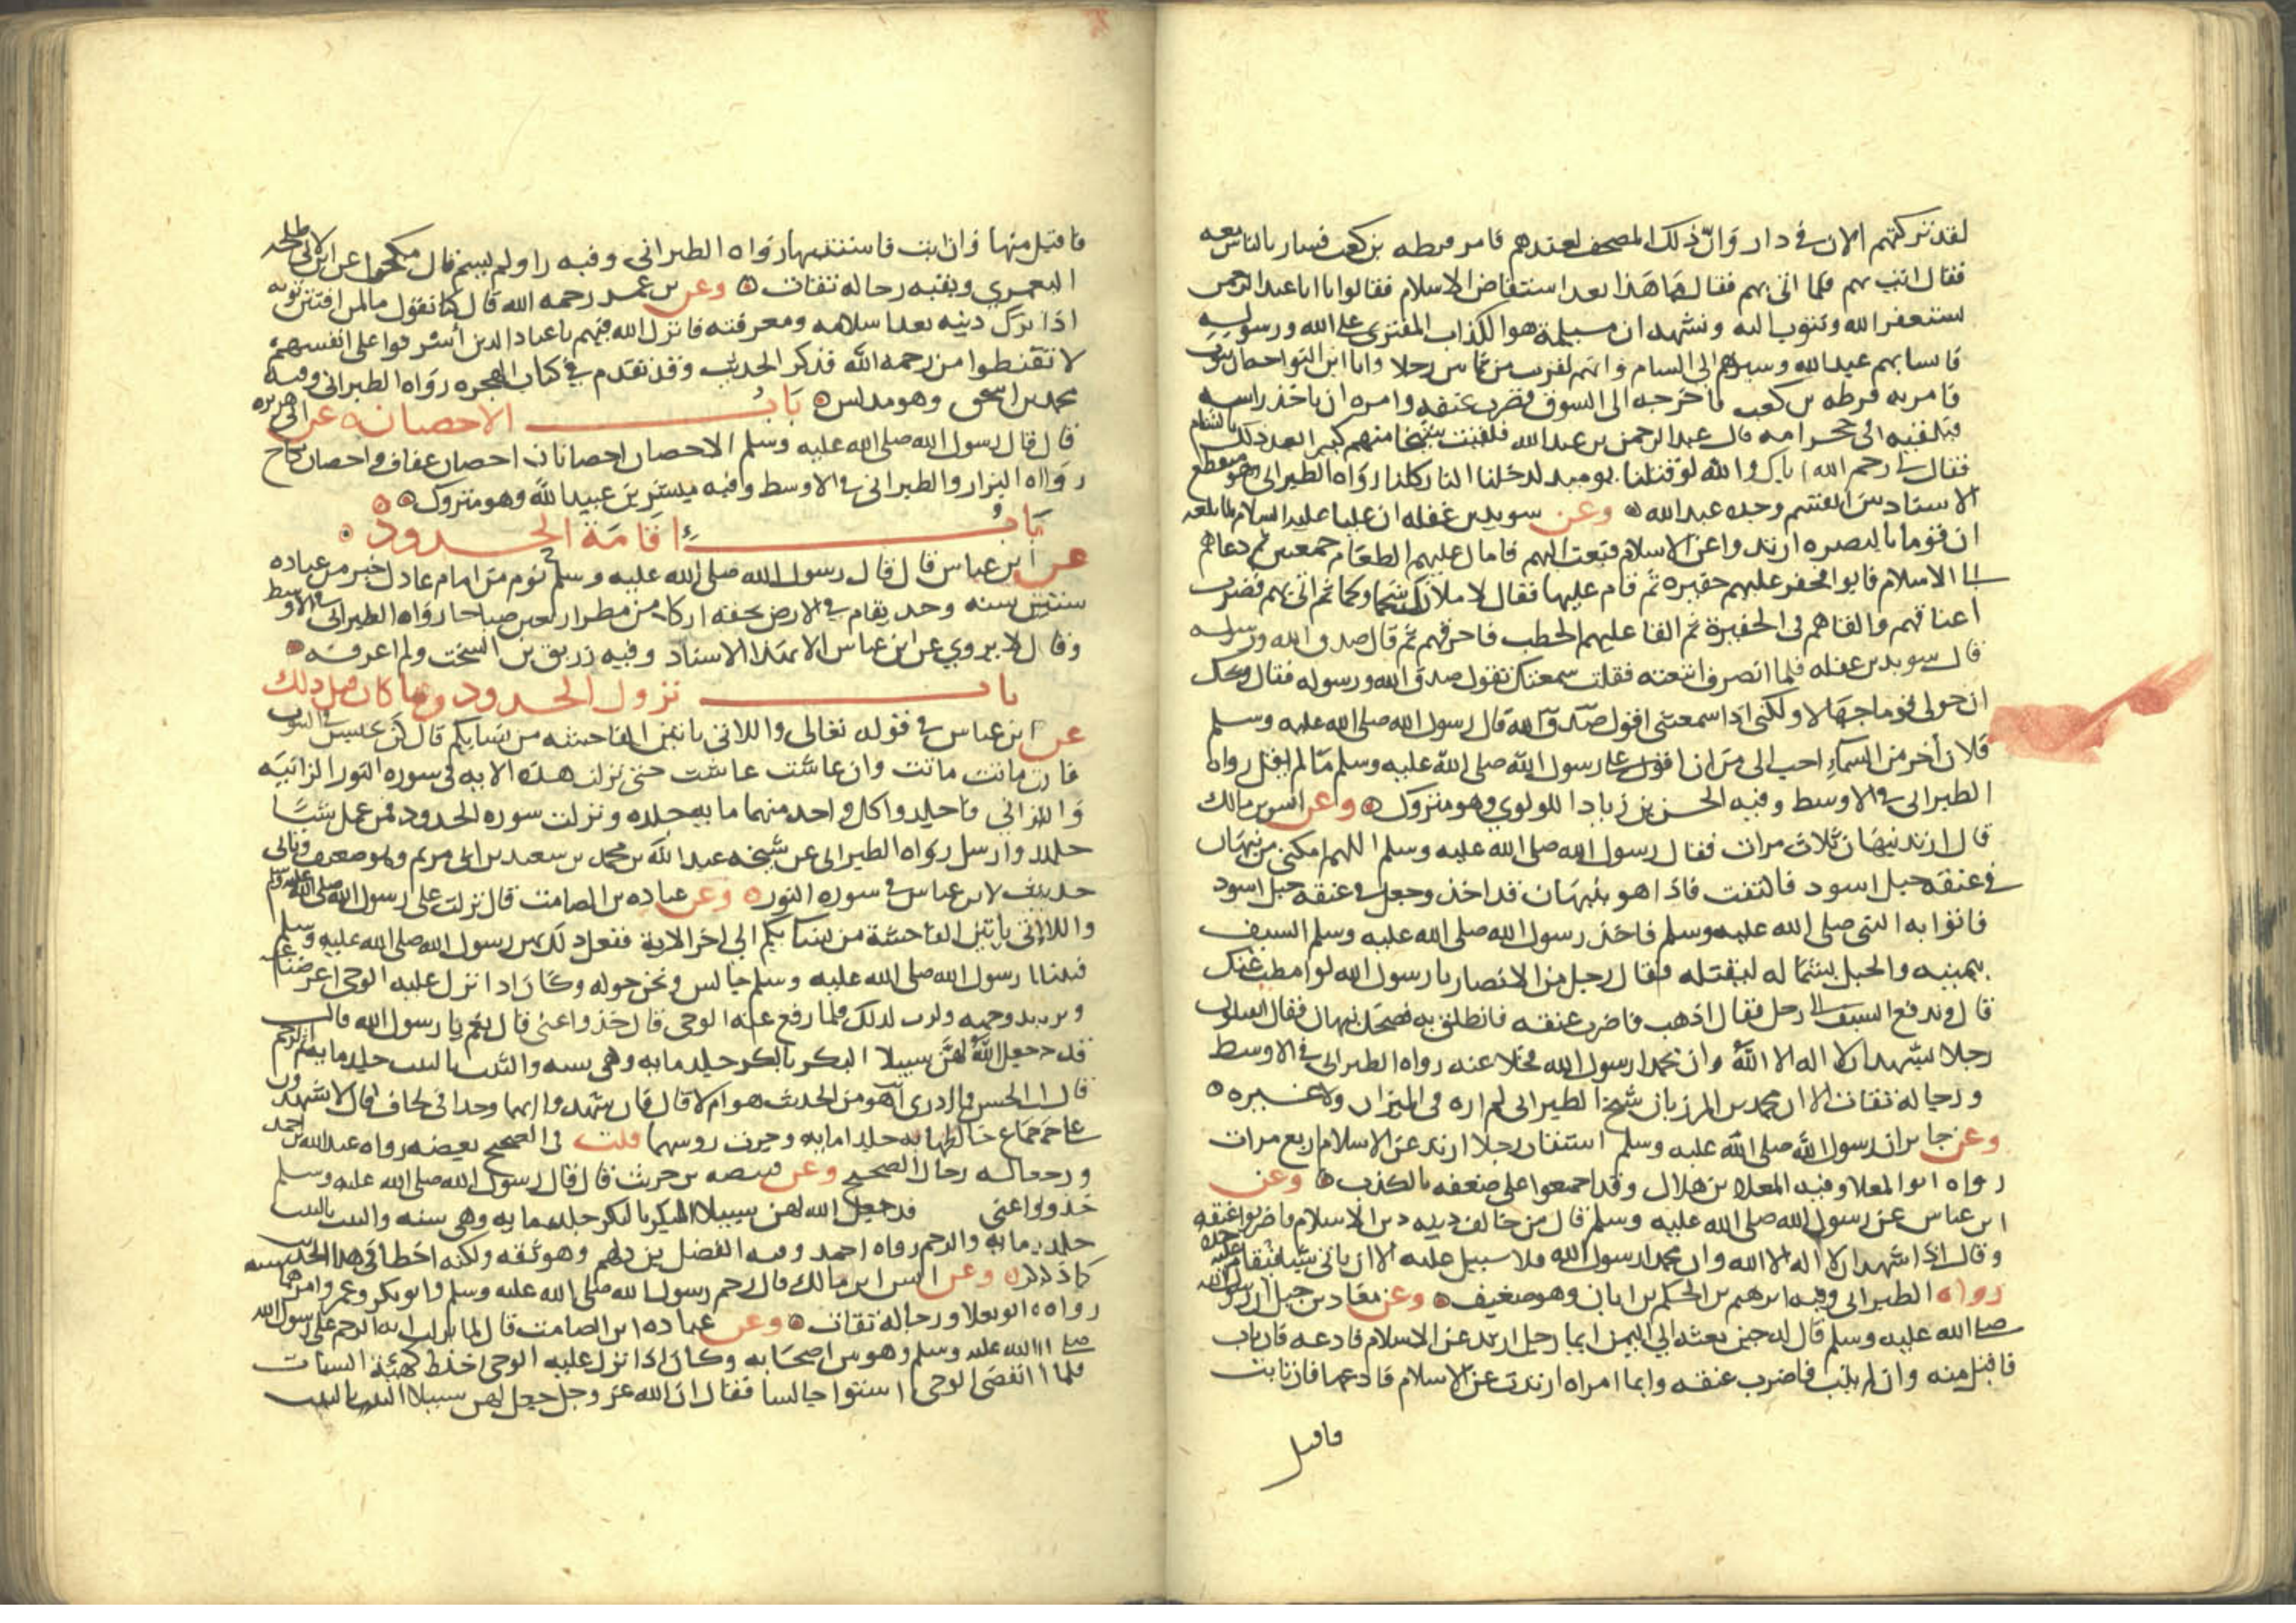 لقد تركتهم الان في دار وان ذلك المصحف لعندهم فامر قرطه بن كعب فسار بالناس معه
فقال ائت بهم فلما اتى بهم فقال ما هذا بعد استفاض الاسلام فقالوا يا ابا عبد الرحمن
نستغفر الله ونتوب اليه ونشهد ان مسيلمة هو الكذاب المفترى على الله ورسوله
فاستتابهم عبد الله وسيرهم الى الشام وانهم لقريب من ثمانين رجلا وابا ابن النواحة ان يتوب
فامر به قرطه بن كعب فاخرجه الى السوق فضرب عنقه وامره ان ياخذ راسه
فيلقيه في حجر امه قال عبد الرحمن بن عبد الله فلقيت شيخا منهم كبيرا بعد ذلك بالشام
فقال لي رحم الله اباك والله لو قتلنا يوميد لدخلنا النار كلنا رواه الطبراني وهو منقطع
الاسناد بين القسم وجده عبد الله وعن سويد بن غفله ان عليا عليه السلام بلغه
ان قوما بالبصره ارتدوا عن الاسلام فبعث اليهم فامال عليهم الطعام جمعتين ثم دعاهم
الى الاسلام فابوا فحفر عليهم حفيره ثم قام عليها فقال لاملانك شحما ولحما ثم اتى بهم فضرب
اعناقهم والقاهم في الحفيرة ثم القا عليهم الحطب فاحرقهم ثم قال صدق الله ورسوله
قال سويد بن غفله فلما انصرف اتبعته فقلت سمعتك تقول صدق الله ورسوله فقال ويحك
ان حولي قوما جهالا ولكني اذا سمعتني اقول صدق الله قال رسول الله صلى الله عليه وسلم
فلان اخر من السماء احب الى من ان اقول على رسول الله صلى الله عليه وسلم ما لم يقل رواه
الطبراني في الاوسط وفيه الحسن بن زياد اللولوي وهو متروك وعن انس بن مالك
قال ارتد نبهان ثلاث مرات فقال رسول الله صلى الله عليه وسلم اللهم امكني من نبهان
في عنقه حبل اسود فالتفت فاذا هو بنبهان قد اخذ وجعل في عنقه حبل اسود
فاتوا به النبي صلى الله عليه وسلم فاخذ رسول الله صلى الله عليه وسلم السيف
بيمينه والحبل بشماله ليقتله فقال رجل من الانصار يا رسول الله لو امطت عنك
قال فدفع السيف الى رجل فقال اذهب فاضرب عنقه فانطلق به فضحك نبهان فقال اتقتلون
رجلا يشهد ان لا اله الا الله وان محمدا رسول الله فخلا عنه رواه الطبراني في الاوسط
ورجاله ثقات الا ان محمد بن المرزبان شيخ الطبراني لم اره في الميزان ولا غيره
وعن جابر ان رسول الله صلى الله عليه وسلم استتاب رجلا ارتد عن الاسلام اربع مرات
رواه ابو المعلا وفيه المعلا بن هلال وقد اجمعوا على ضعفه بالكذب وعن
ابن عباس عن رسول الله صلى الله عليه وسلم قال من خالف دينه دين الاسلام فاضربوا عنقه
وقال اذا شهد ان لا اله الا الله وان محمدا رسول الله فلا سبيل عليه الا ان ياتي شيا فيقام عليه حده
رواه الطبراني وفيه ابرهيم بن الحكم بن ابان وهو ضعيف وعن معاذ بن جبل ان رسول الله
صلى الله عليه وسلم قال له حين بعثه الى اليمن ايما رجل ارتد عن الاسلام فادعه فان تاب
فاقبل منه وان لم يتب فاضرب عنقه وايما امراه ارتدت عن الاسلام فادعها فان تابت
فاقبل
فاقبل منها وان ابت فاستتبها رواه الطبراني وفيه راو لم يسم قال مكحول عن ابن لابي طلحه
اليعمري وبقيه رجاله ثقات وعن بن عمر رحمه الله قال كنا نقول ما لمن افتتن توبه
اذا ترك دينه بعد اسلامه ومعرفته فانزل الله فيهم يا عبادي الذين أسرفوا على انفسهم
لا تقنطوا من رحمه الله فذكر الحديث وقد تقدم في كتاب الهجره رواه الطبراني وفيه
محمد بن اسحق وهو مدلس باب الاحصان عن ابي هريره
قال قال رسول الله صلى الله عليه وسلم الاحصان احصانان احصان عفاف واحصان نكاح
رواه البزار والطبراني في الاوسط وفيه مبشر بن عبيد الله وهو متروك
باب اقامة الحدود
عن ابن عباس قال قال رسول الله صلى الله عليه وسلم يوم من امام عادل خير من عباده
ستين سنه وحد يقام في الارض بحقه ازكا من مطر اربعين صباحا رواه الطبراني في الاوسط
وقال لا يروي عن ابن عباس الا بهذا الاسناد وفيه زريق بن السخت ولم اعرفه
باب نزول الحدود وما كان قبل ذلك
عن ابن عباس في قوله تعالى واللاتي ياتين الفاحشه من نسايكم قال كن يحبسن في البيوت
فان ماتت ماتت وان عاشت عاشت حتى نزلت هذه الايه في سوره النور الزانيه
والزاني فاجلدوا كل واحد منهما مايه جلده ونزلت سوره الحدود فمن عمل شيئا
جلد وارسل رواه الطبراني عن شيخه عبد الله بن محمد بن سعيد بن ابي مريم وهو ضعيف وياتي
حديث لابن عباس في سوره النور وعن عباده بن الصامت قال نزلت على رسول الله صلى الله عليه وسلم
واللاتي ياتين الفاحشة من نسايكم الى اخر الاية ففعل ذلك بهن رسول الله صلى الله عليه وسلم
فبينا رسول الله صلى الله عليه وسلم جالس ونحن حوله وكان اذا نزل عليه الوحى اعرض عنا
وتربد وجهه وكرب لذلك فلما رفع عنه الوحى قال خذوا عني قال نعم يا رسول الله قال
قد جعل الله لهن سبيلا البكر بالبكر جلد مايه ونفي سنه والثيب بالثيب جلد مايه ثم الرجم
قال الحسن فلا ادري امن الحديث هو ام لا قال فان شهدوا انهما وجدا في لحاف قال لا يشهدون
على جماع خالطها به جلدا مايه وجزت روسهما قلت في الصحيح بعضه رواه عبد الله بن احمد
ورجاله رجال الصحيح وعن قبيصه بن حريث قال قال رسول الله صلى الله عليه وسلم
خذوا عني قد جعل الله لهن سبيلا البكر بالبكر جلد مايه ونفي سنه والثيب بالثيب
جلد مايه والرجم رواه احمد وفيه الفضل بن دلهم وهو ثقه ولكنه اخطا في هذا الحديث
كما ذكر وعن انس ابن مالك قال رجم رسول الله صلى الله عليه وسلم وابو بكر وعمر وامرهما
رواه ابو يعلا ورجاله ثقات وعن عباده ابن الصامت قال لما نزلت ايه الرجم على رسول الله
صلى الله عليه وسلم وهو بين اصحابه وكان اذا نزل عليه الوحى اخذه كهيئة السبات
فلما انقضى الوحى استوا جالسا فقال ان الله عز وجل جعل لهن سبيلا الثيب بالثيب